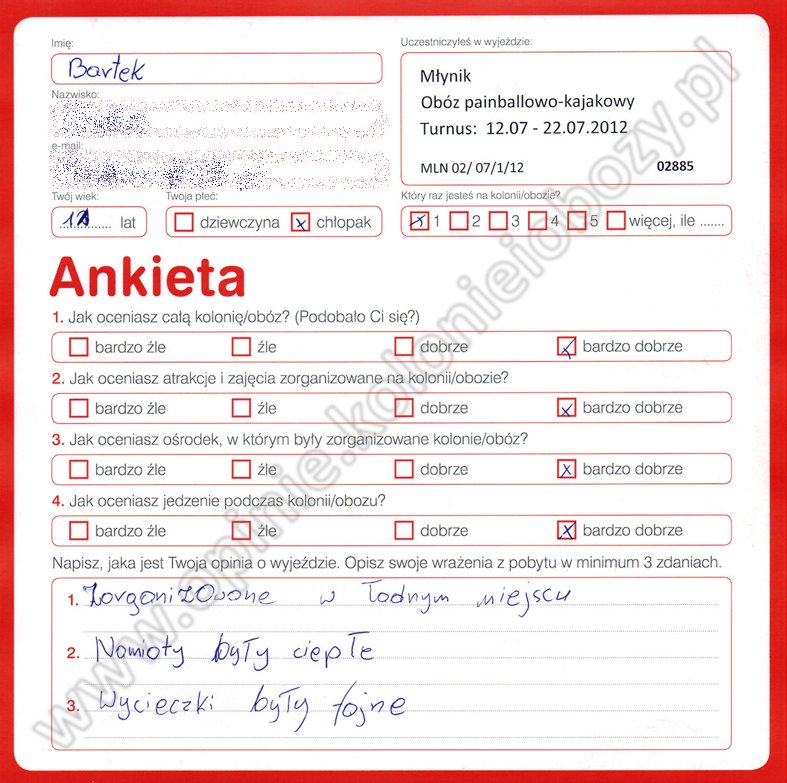 Imię:
Bartek
Nazwisko:
e-mail:
Twój wiek:
lat
Twoja płeć:
dziewczyna chłopak
Uczestniczyłeś w wyjeździe:
Młynik
Obóz painballowo-kajakowy
Turnus: 12.07 - 22.07.2012
MLN 02/ 07/1/12 02885
Który raz jesteś na kolonii/obozie?
1 2 3 4 5 więcej, ile .......
Ankieta
1. Jak oceniasz całą kolonię/obóz? (Podobało Ci się?)
bardzo źle źle dobrze bardzo dobrze
2. Jak oceniasz atrakcje i zajęcia zorganizowane na kolonii/obozie?
bardzo źle źle dobrze bardzo dobrze
3. Jak oceniasz ośrodek, w którym były zorganizowane kolonie/obóz?
bardzo źle źle dobrze bardzo dobrze
4. Jak oceniasz jedzenie podczas kolonii/obozu?
bardzo źle źle dobrze bardzo dobrze
Napisz, jaka jest Twoja opinia o wyjeździe. Opisz swoje wrażenia z pobytu w minimum 3 zdaniach.
1. Zorganizowane w ładnym miejscu
2. Namioty były ciepłe
3. Wycieczki były fajne
www.opinie.kolonieiobozy.pl